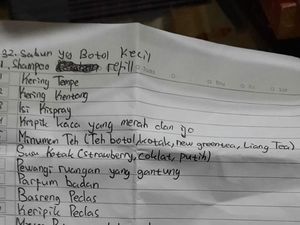 32. Sabun yg Botol Kecil
1. Shampoo refill
Kering Tempe
Kering Kentang
Isi Kispray
Kripik kaca yang merah dan ijo
Minuman Teh (Teh botol, kotak, new greentea, Liang Tea)
Susu Kotak (strawberry, coklat, putih)
Pewangi ruangan yang gantung
Parfum badan
Basreng Pedas
Keripik Pedas